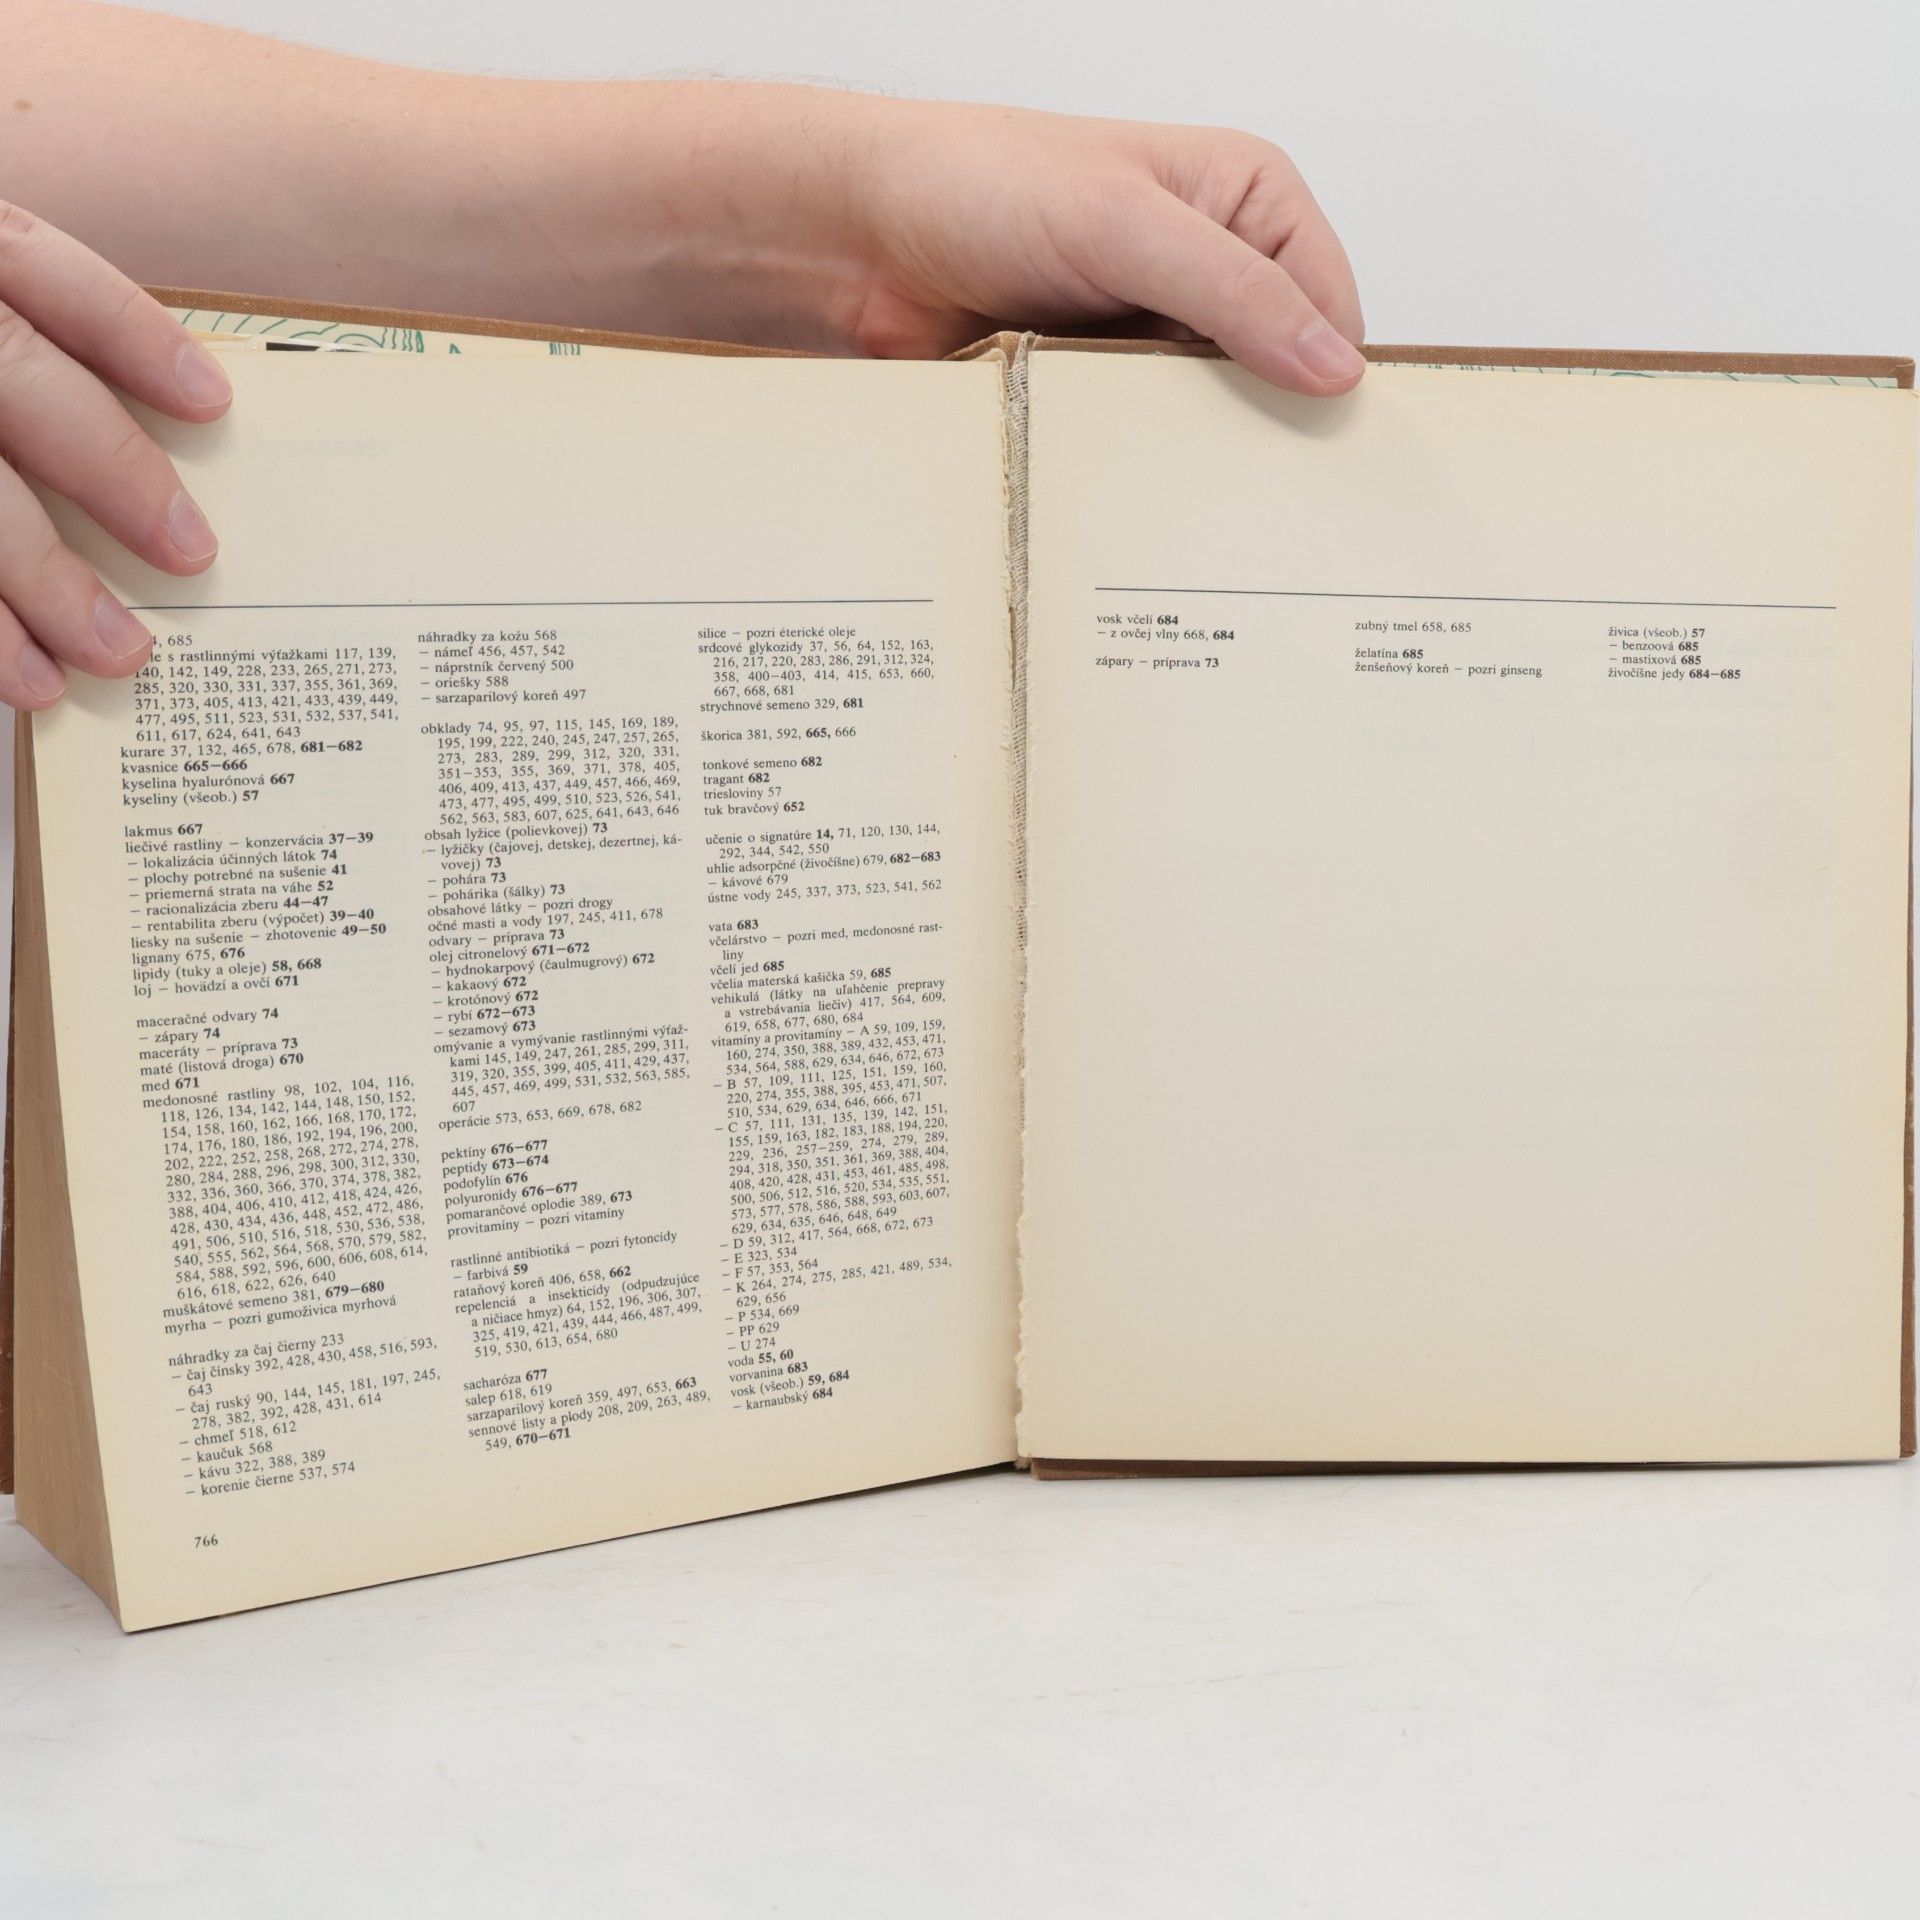 4, 685
le s rastlinnými výťažkami 117, 139,
140, 142, 149, 228, 233, 265, 271, 273,
285, 320, 330, 331, 337, 355, 361, 369,
371, 373, 405, 413, 421, 433, 439, 449,
477, 495, 511, 523, 531, 532, 537, 541,
611, 617, 624, 641, 643
kurare 37, 132, 465, 678, 681—682
kvasnice 665—666
kyselina hyalurónová 667
kyseliny (všeob.) 57
lakmus 667
liečivé rastliny — konzervácia 37—39
— lokalizácia účinných látok 74
— plochy potrebné na sušenie 41
— priemerná strata na váhe 52
— racionalizácia zberu 44—47
— rentabilita zberu (výpočet) 39—40
liesky na sušenie — zhotovenie 49—50
lignany 675, 676
lipidy (tuky a oleje) 58, 668
loj — hovädzí a ovčí 671
maceračné odvary 74
— zápary 74
maceráty — príprava 73
maté (listová droga) 670
med 671
medonosné rastliny 98, 102, 104, 116,
118, 126, 134, 142, 144, 148, 150, 152,
154, 158, 160, 162, 166, 168, 170, 172,
174, 176, 180, 186, 192, 194, 196, 200,
202, 222, 252, 258, 268, 272, 274, 278,
280, 284, 288, 296, 298, 300, 312, 330,
332, 336, 360, 366, 370, 374, 378, 382,
388, 404, 406, 410, 412, 418, 424, 426,
428, 430, 434, 436, 448, 452, 472, 486,
491, 506, 510, 516, 518, 530, 536, 538,
540, 555, 562, 564, 568, 570, 579, 582,
584, 588, 592, 596, 600, 606, 608, 614,
616, 618, 622, 626, 640
muškátové semeno 381, 679—680
myrha — pozri gumoživica myrhová
náhradky za čaj čierny 233
— čaj čínsky 392, 428, 430, 458, 516, 593,
643
— čaj ruský 90, 144, 145, 181, 197, 245,
278, 382, 392, 428, 431, 614
— chmeľ 518, 612
— kaučuk 568
— kávu 322, 388, 389
— korenie čierne 537, 574
766
náhradky za kožu 568
— námeľ 456, 457, 542
— náprstník červený 500
— oriešky 588
— sarzaparilový koreň 497
obklady 74, 95, 97, 115, 145, 169, 189,
195, 199, 222, 240, 245, 247, 257, 265,
273, 283, 289, 299, 312, 320, 331,
351—353, 355, 369, 371, 378, 405,
406, 409, 413, 437, 449, 457, 466, 469,
473, 477, 495, 499, 510, 523, 526, 541,
562, 563, 583, 607, 625, 641, 643, 646
obsah lyžice (polievkovej) 73
— lyžičky (čajovej, detskej, dezertnej, ká-
vovej) 73
— pohára 73
— pohárika (šálky) 73
obsahové látky — pozri drogy
očné masti a vody 197, 245, 411, 678
odvary — príprava 73
olej citronelový 671—672
— hydnokarpový (čaulmugrový) 672
— kakaový 672
— krotónový 672
— rybí 672—673
— sezamový 673
omývanie a vymývanie rastlinnými výťaž-
kami 145, 149, 247, 261, 285, 299, 311,
319, 320, 355, 399, 405, 411, 429, 437,
445, 457, 469, 499, 531, 532, 563, 585,
607
operácie 573, 653, 669, 678, 682
pektíny 676—677
peptidy 673—674
podofylín 676
polyuronidy 676—677
pomarančové oplodie 389, 673
provitamíny — pozri vitamíny
rastlinné antibiotiká — pozri fytoncídy
— farbivá 59
rataňový koreň 406, 658, 662
repelenciá a insekticídy (odpudzujúce
a ničiace hmyz) 64, 152, 196, 306, 307,
325, 419, 421, 439, 444, 466, 487, 499,
519, 530, 613, 654, 680
sacharóza 677
salep 618, 619
sarzaparilový koreň 359, 497, 653, 663
sennové listy a plody 208, 209, 263, 489,
549, 670—671
silice — pozri éterické oleje
srdcové glykozidy 37, 56, 64, 152, 163,
216, 217, 220, 283, 286, 291, 312, 324,
358, 400—403, 414, 415, 653, 660,
667, 668, 681
strychnové semeno 329, 681
škorica 381, 592, 665, 666
tonkové semeno 682
tragant 682
triesloviny 57
tuk bravčový 652
učenie o signatúre 14, 71, 120, 130, 144,
292, 344, 542, 550
uhlie adsorpčné (živočíšne) 679, 682—683
— kávové 679
ústne vody 245, 337, 373, 523, 541, 562
vata 683
včelárstvo — pozri med, medonosné rast-
liny
včelí jed 685
včelia materská kašička 59, 685
vehikulá (látky na uľahčenie prepravy
a vstrebávania liečiv) 417, 564, 609,
619, 658, 677, 680, 684
vitamíny a provitamíny — A 59, 109, 159,
160, 274, 350, 388, 389, 432, 453, 471,
534, 564, 588, 629, 634, 646, 672, 673
— B 57, 109, 111, 125, 151, 159, 160,
220, 274, 355, 388, 395, 453, 471, 507,
510, 534, 629, 634, 646, 666, 671
— C 57, 111, 131, 135, 139, 142, 151,
155, 159, 163, 182, 183, 188, 194, 220,
229, 236, 257—259, 274, 279, 289,
294, 318, 350, 351, 361, 369, 388, 404,
408, 420, 428, 431, 453, 461, 485, 498,
500, 506, 512, 516, 520, 534, 535, 551,
573, 577, 578, 586, 588, 593, 603, 607,
629, 634, 635, 646, 648, 649
— D 59, 312, 417, 564, 668, 672, 673
— E 323, 534
— F 57, 353, 564
— K 264, 274, 275, 285, 421, 489, 534,
629, 656
— P 534, 669
— PP 629
— U 274
voda 55, 60
vorvanina 683
vosk (všeob.) 59, 684
— karnaubský 684
vosk včelí 684
— z ovčej vlny 668, 684
zápary — príprava 73
zubný tmel 658, 685
želatína 685
ženšeňový koreň — pozri ginseng
živica (všeob.) 57
— benzoová 685
— mastixová 685
živočíšne jedy 684—685